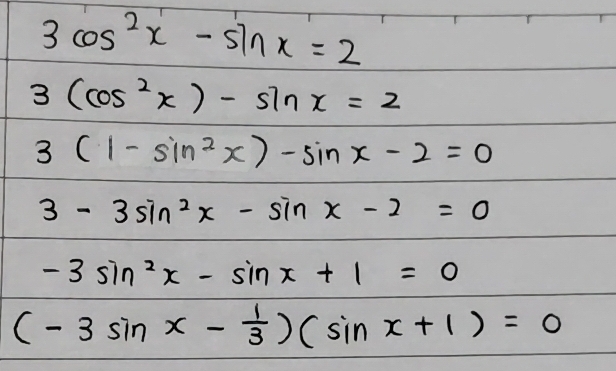 3 cos²x - sin x = 2
3 (cos²x) - sin x = 2
3 (1 - sin²x) - sin x - 2 = 0
3 - 3 sin²x - sin x - 2 = 0
-3 sin²x - sin x + 1 = 0
(-3 sin x - 1/3)(sin x + 1) = 0